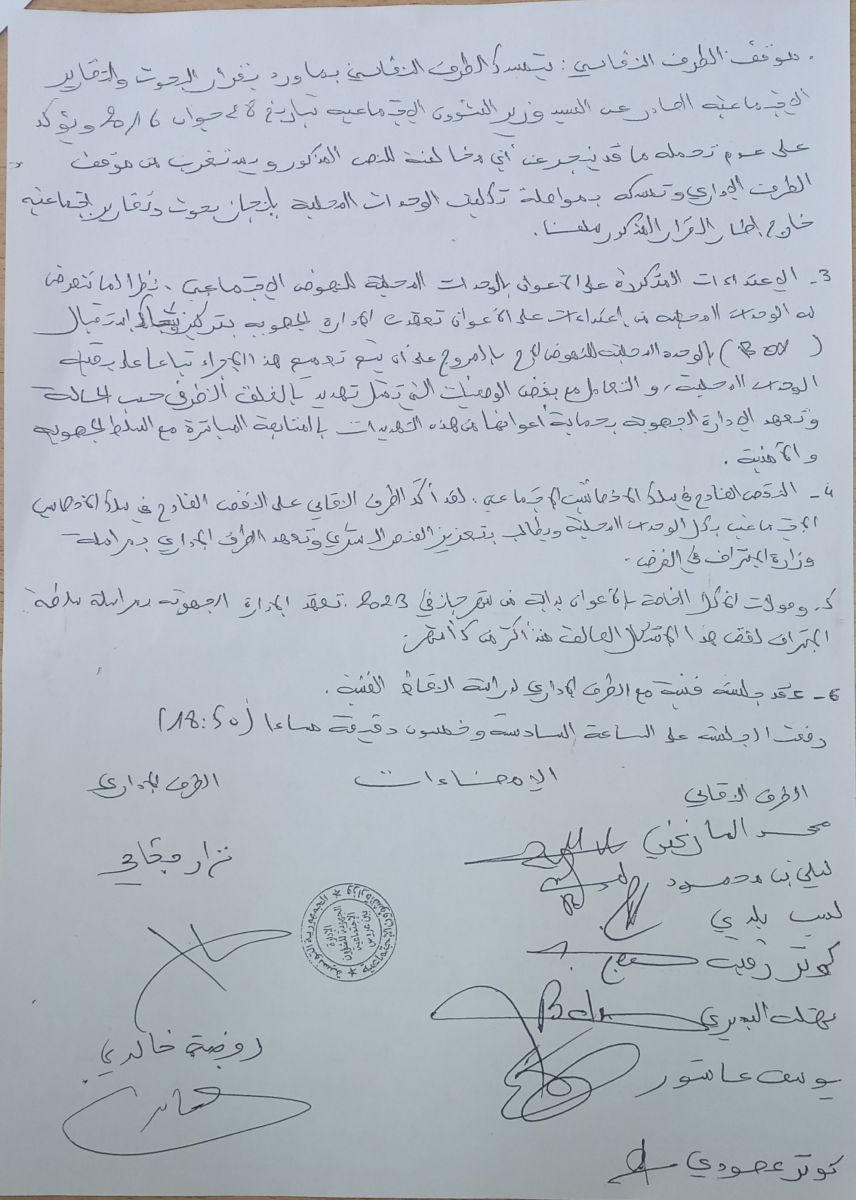 . موقف الطرف النقابي : يتمسك الطرف النقابي بما ورد بقرار البحوث والتقارير
الاجتماعية الصادر عن السيد وزير الشؤون الاجتماعية بتاريخ 28 جوان 2016 ويؤكد
على عدم تحمله ما قد ينجر عن أي مخالفة للنص المذكور ويستغرب من موقف
الطرف الإداري وتمسكه بمواصلة تكليف الوحدات المحلية بإنجاز بحوث وتقارير اجتماعية
خارج إطار القرار المذكور سلفا.
3- الإعتداءات المتكررة على الأعوان بالوحدات المحلية للنهوض الإجتماعي . نظرا لما تتعرض
له الوحدات المحلية من إعتداءات على الأعوان تعهدت الإدارة الجهوية بتركيز شباك استقبال
(Box) بالوحدة المحلية للنهوض إج بالمروج على أن يتم تعميم هذا الإجراء تباعا على بقية
الوحدات المحلية، و التعامل مع بعض الوضعيات التي تمثل تهديد بالغلق الظرفي حسب الحالة
وتعهد الإدارة الجهوية بحماية أعوانها من هذه التهديدات بالمتابعة المباشرة مع السلط الجهوية
و الأمنية .
4- النقص الفادح في سلك الأخصائيين الإجتماعيين . لقد أكد الطرف النقابي على النقص الفادح في سلك الأخصائيين
الإجتماعيين بكل الوحدات المحلية ويطالب بتعزيز العنصر البشري وتعهد الطرف الإداري بمراسلة
وزارة الإشراف في الغرض .
5- وصولات الأكل الخاصة بالأعوان بداية من شهر جانفي 2023. تعهد الإدارة الجهوية بمراسلة سلطة
الإشراف لفض هذا الإشكال العالق منذ أكثر من 5 أشهر.
6- عقد جلسة فنية مع الطرف الإداري لدراسة النقاط الفنية .
رفعت الجلسة على الساعة السادسة وخمسون دقيقة مساءا (18:50)
الطرف النقابي
الإمضاءات
الطرف الإداري
محمد المازني
ليلى بن محمود
بلدي
كوثر
البديري
يوسف عاشور
كوثر عبودي
نزار
روضة خالدي
الجمهورية التونسية
وزارة الشؤون الاجتماعية